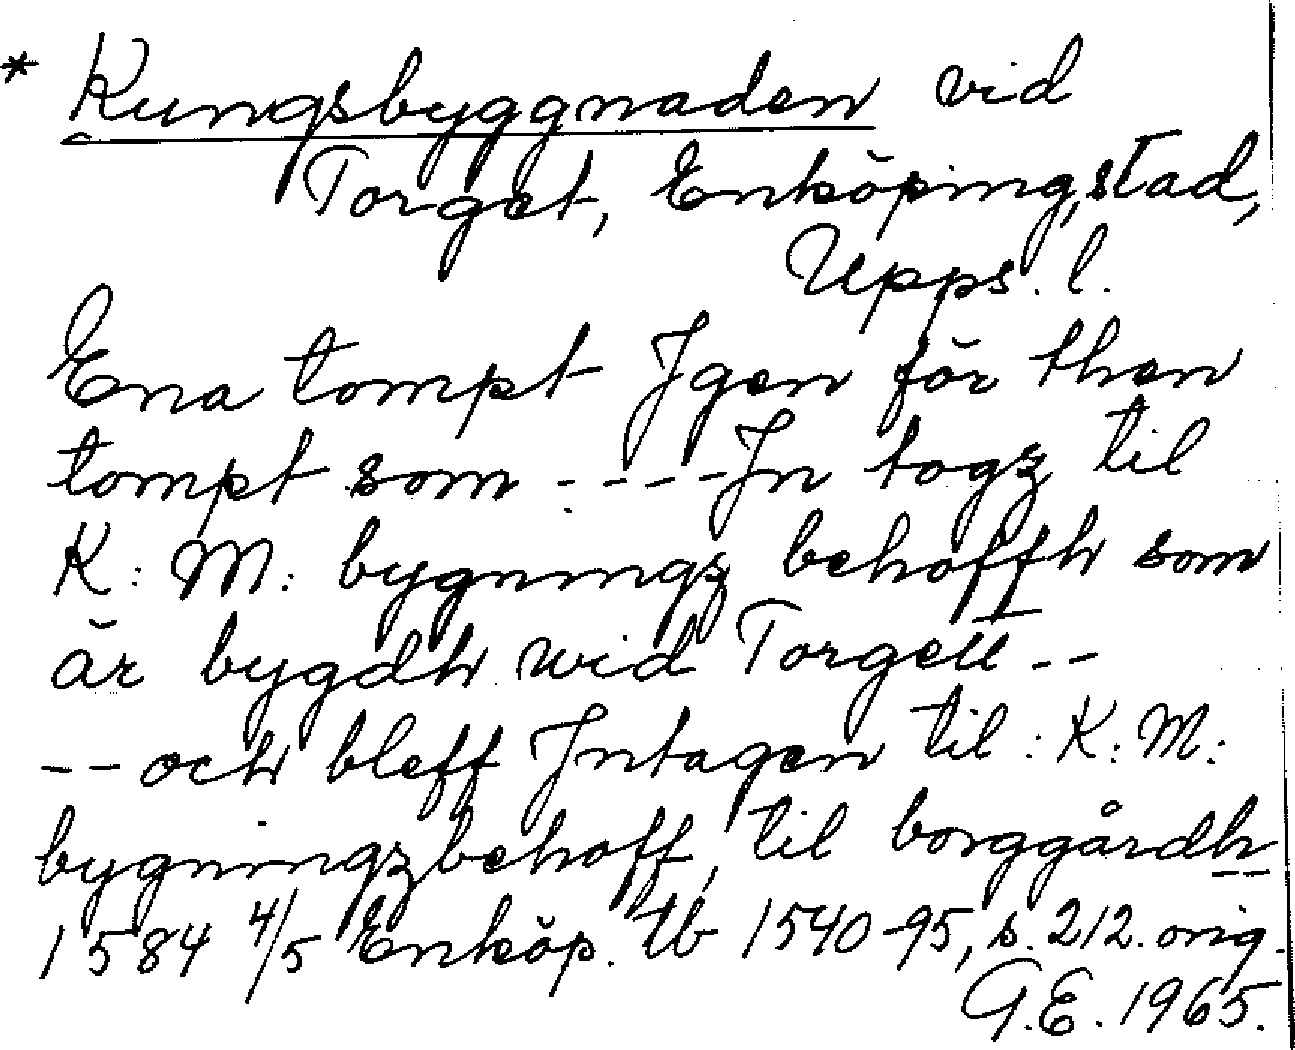 * Kungsbyggnaden vid
Torget, Enköping, stad,
Upps. l.
Ena tompt Jgen för then
tompt som - - - - Jn togz til
K: M: bygningz behoffh som
är bygdh wid Torgett - -
- - och bleff Jntagen til : K: M:
bygningzbehoff, til borggårdh - -
1584 4/5 Enköp. tb 1540-95, s. 212. orig.
G.E. 1965.